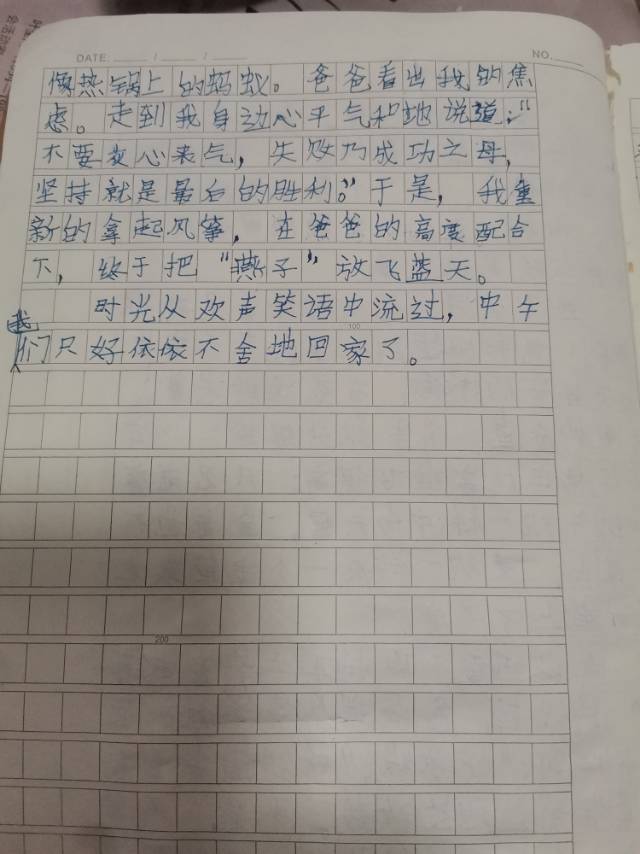 DATE: / /
NO.
像热锅上的蚂蚁。爸爸看出我的焦
虑。走到我身边心平气和地说道:“
不要灰心丧气,失败乃成功之母,
坚持就是最后的胜利。”于是,我重
新的拿起风筝,在爸爸的高度配合
下,终于把“燕子”放飞蓝天。
时光从欢声笑语中流过,中午
我们只好依依不舍地回家了。
100
200